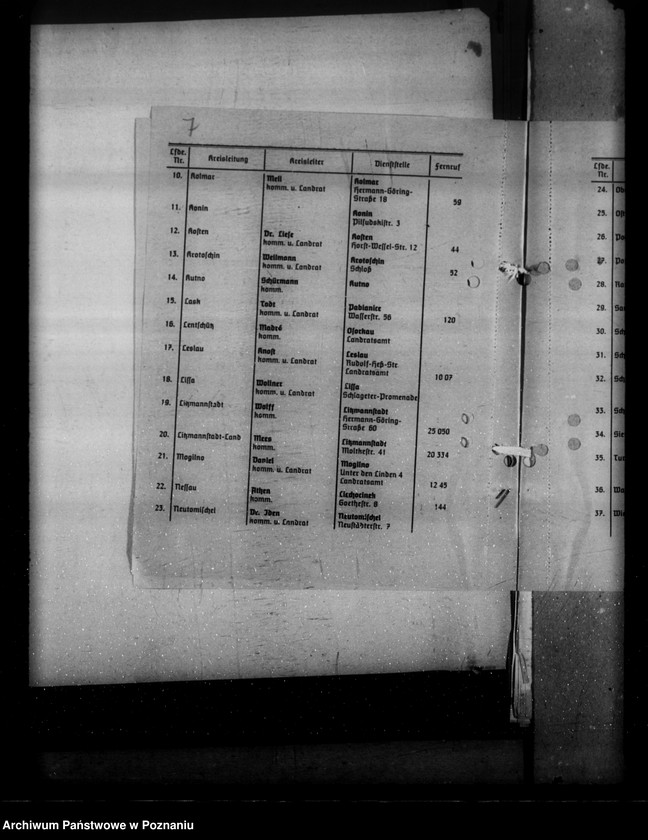 7
Lfde. Nr. Kreisleitung Kreisleiter Dienststelle Fernruf
10. Kolmar Mell Kolmar
komm. u. Landrat Hermann-Göring-
Straße 18 59
11. Konin Konin
Pilsudskistr. 3
12. Kosten Dr. Liese Kosten
komm. u. Landrat Horst-Wessel-Str. 12 44
13. Krotoschin Wellmann Krotoschin
komm. u. Landrat Schloß 52
14. Kutno Schürmann Kutno
komm.
15. Lask Todt Pabianice
komm. u. Landrat Wasserstr. 56 120
16. Lentschütz Madré Osorkau
komm. Landratsamt
17. Leslau Knost Leslau
komm. u. Landrat Rudolf-Heß-Str.
Landratsamt 10 07
18. Lissa Wollner Lissa
komm. u. Landrat Schlageter-Promenade
19. Litzmannstadt Wolff Litzmannstadt
komm. Hermann-Göring-
Straße 60 25 050
20. Litzmannstadt-Land Mees Litzmannstadt
komm. Moltkestr. 41 20 334
21. Mogilno Daniel Mogilno
komm. u. Landrat Unter den Linden 4
Landratsamt 12 45
22. Nessau Ciechocinek
komm. Goethestr. 6 144
23. Neutomischel Dr. Iben Neutomischel
komm. u. Landrat Neustädterstr. 7
Lfde.
Nr.
24.
25.
26.
27.
28.
29.
30.
31.
32.
33.
34.
35.
36.
37.
Archiwum Państwowe w Poznaniu